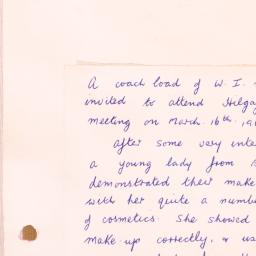 A coach load of W.I.
invited to attend Hilga
meeting on March 16th, 19
After some very inte
a young lady from
demonstrated their make
with her quite a numb
of cosmetics. She showed
make-up correctly, & us